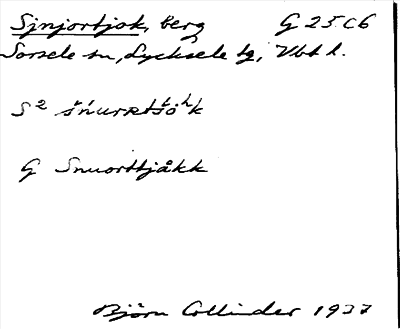 Sjnjortjok, berg G 25 C6
Sorsele sn, Lycksele tg, Vbt l.
S² śńurʀtśo̊ʰk
G Snuorttjåkk
Björn Collinder 1937